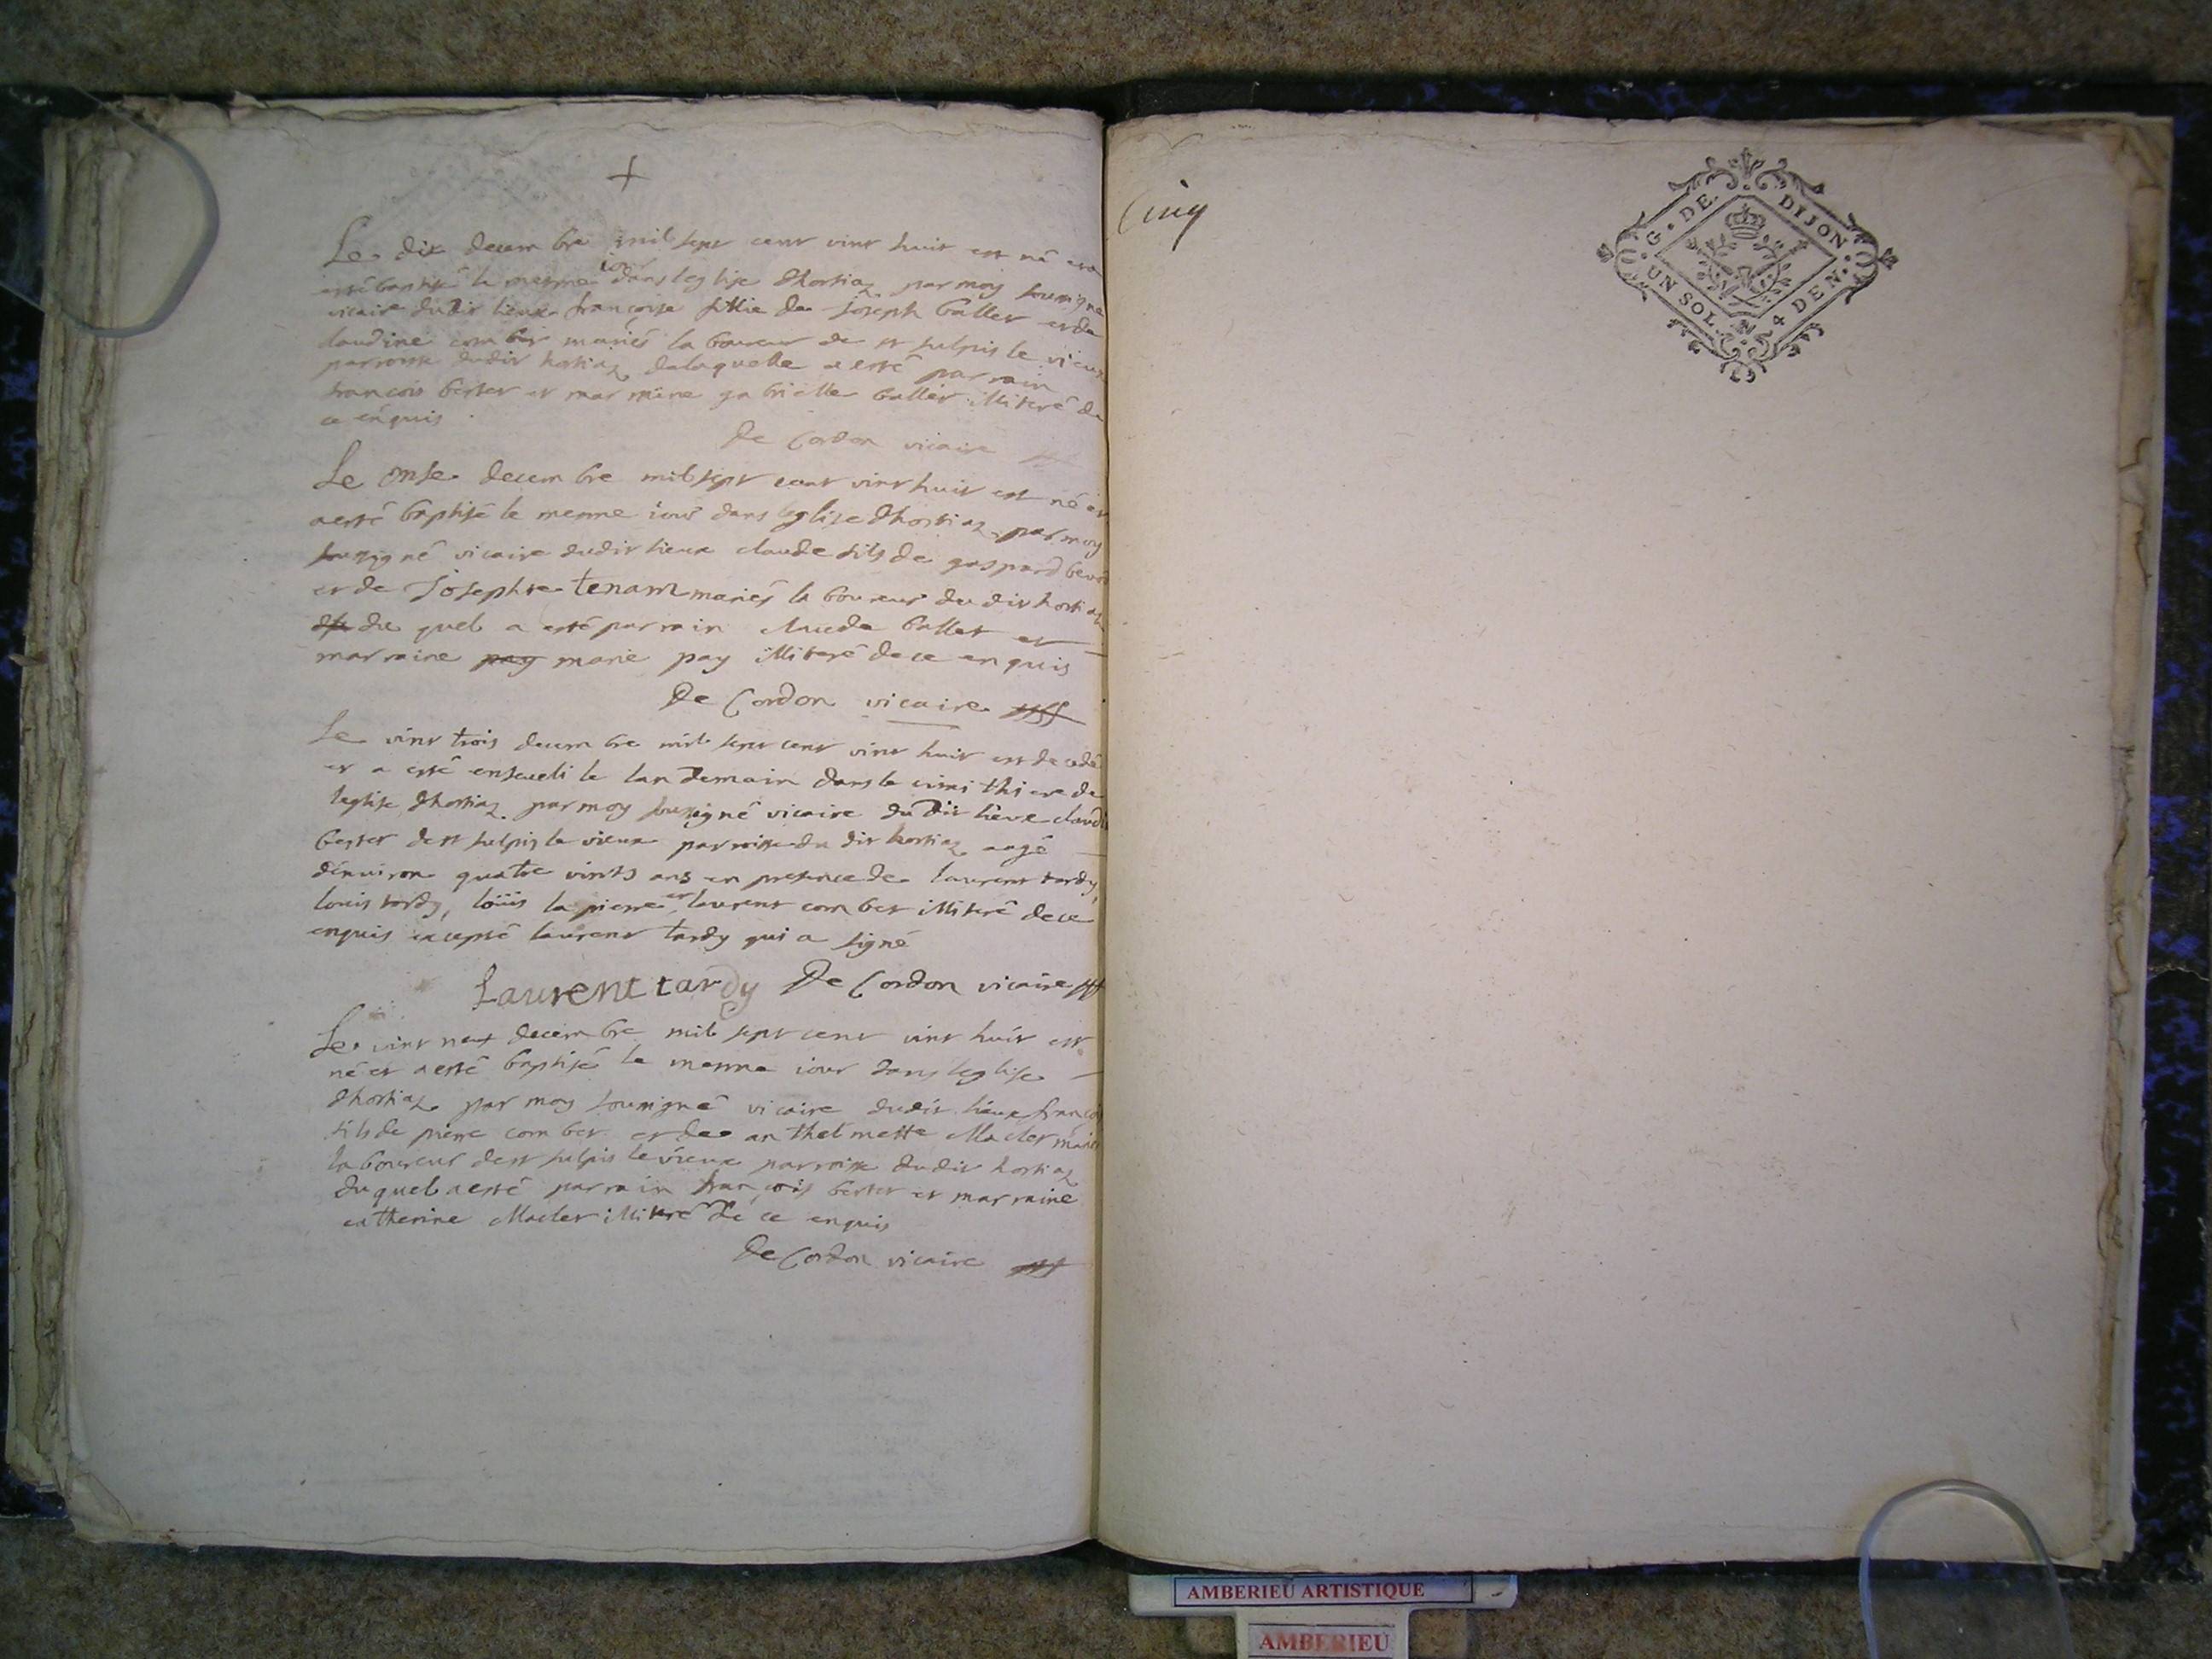 Le dix decembre mil sept cent vint huit est né et a
esté baptisé le mesme iour dans leglise dhostiaz par moy sousigné
vicaire dudit lieux francoise fillie de Joseph ballet et de
claudine combet mariés laboureur de st sulpis le vieux
parroisse dudit hostiaz de laquelle a esté parrain
francois bertet et marraine gabrielle ballet illiteré de
ce enquis
De Cordon vicaire
Le onse decembre mil sept cent vint huit est né et
a esté baptisé le mesme iour dans leglise dhostiaz par moy
sousigné vicaire dudit lieux claude fils de gaspard
et de Josephte tenam mariés laboureur dudit hostiaz
du quel a esté parrain claude ballet et
marraine pay marie pay illiteré de ce enquis
De Cordon vicaire
Le vint trois decembre mil sept cent vint huit est decedé
et a esté enseveli le landemain dans le cimithiere de
leglise dhostiaz par moy sousigné vicaire du dit lieux
bertet de st sulpis le vieux parroisse du dit hostiaz aagé
denuiron quatre vints ans en presence de laurent tardy,
louis tardy, loüis la pierre et laurent combet illiteré de ce
enquis excepté laurent tardy qui a signé
Laurent tardy De Cordon vicaire
Le vint neuf decembre mil sept cent vint huit est
né et a esté baptisé le mesme iour dans leglise
dhostiaz par moy sousigné vicaire dudit lieux françois
fils de pierre combet et de anthelmette Maclet mariés
laboureur de st sulpis le vieux parroisse dudit hostiaz
duquel a esté parrain françois bertet et marraine
catherine Maclet illiteré de ce enquis
De Cordon vicaire
Cinq
G. DE DIJON
UN SOL 4 DEN.
AMBERIEU ARTISTIQUE
AMBERIEU